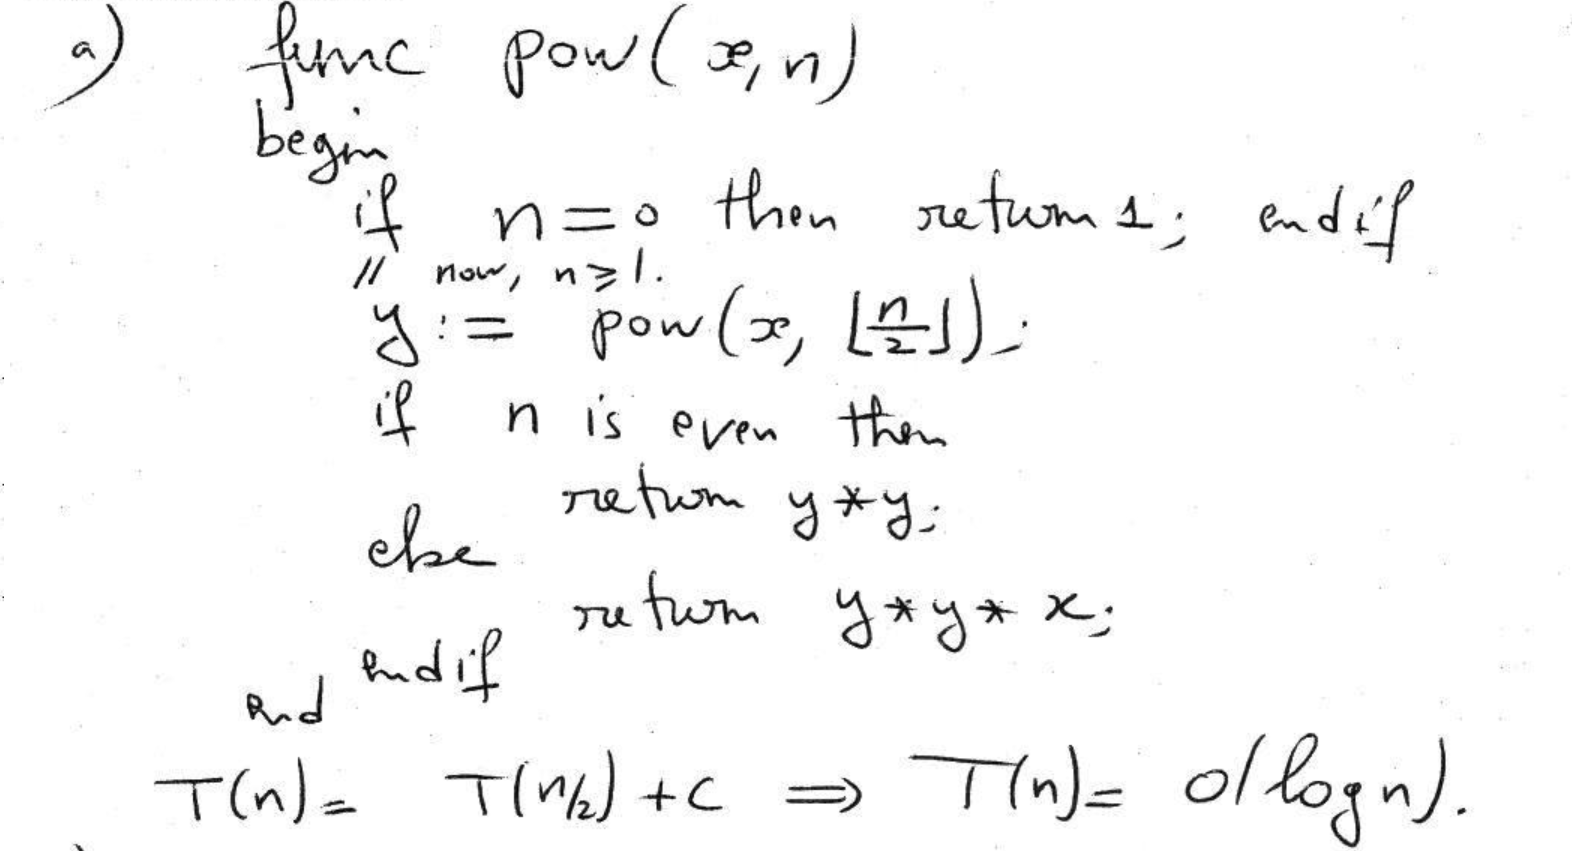 a) func pow(x, n)
begin
if n = 0 then return 1; endif
// now, n ≥ 1.
y := pow(x, ⌊n/2⌋);
if n is even then
return y * y;
else
return y * y * x;
endif
end
T(n) = T(n/2) + C ⇒ T(n) = O(log n).